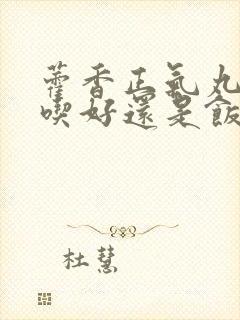 藿香正氣丸
喫好還是飯
杜慧